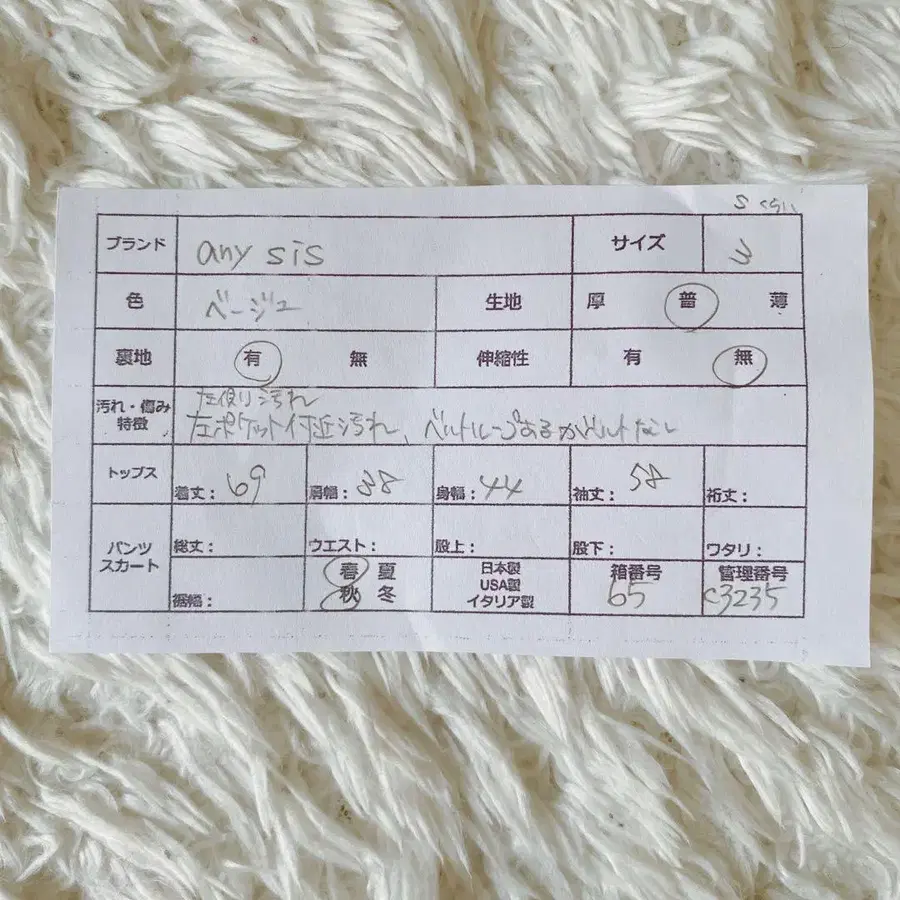 S くらい
ブランド any sis サイズ 3
色 ベージュ 生地 厚 普 薄
裏地 有 無 伸縮性 有 無
汚れ・傷み 左側り汚れ
特徴 左ポケット付近汚れ、ベルトループあるがベルトなし
トップス 着丈: 69 肩幅: 38 身幅: 44 袖丈: 58 裄丈:
パンツ 総丈: ウエスト: 股上: 股下: ワタリ:
スカート
裾幅: 春 夏 日本製 箱番号 管理番号
秋 冬 USA製 65 c3235
イタリア製